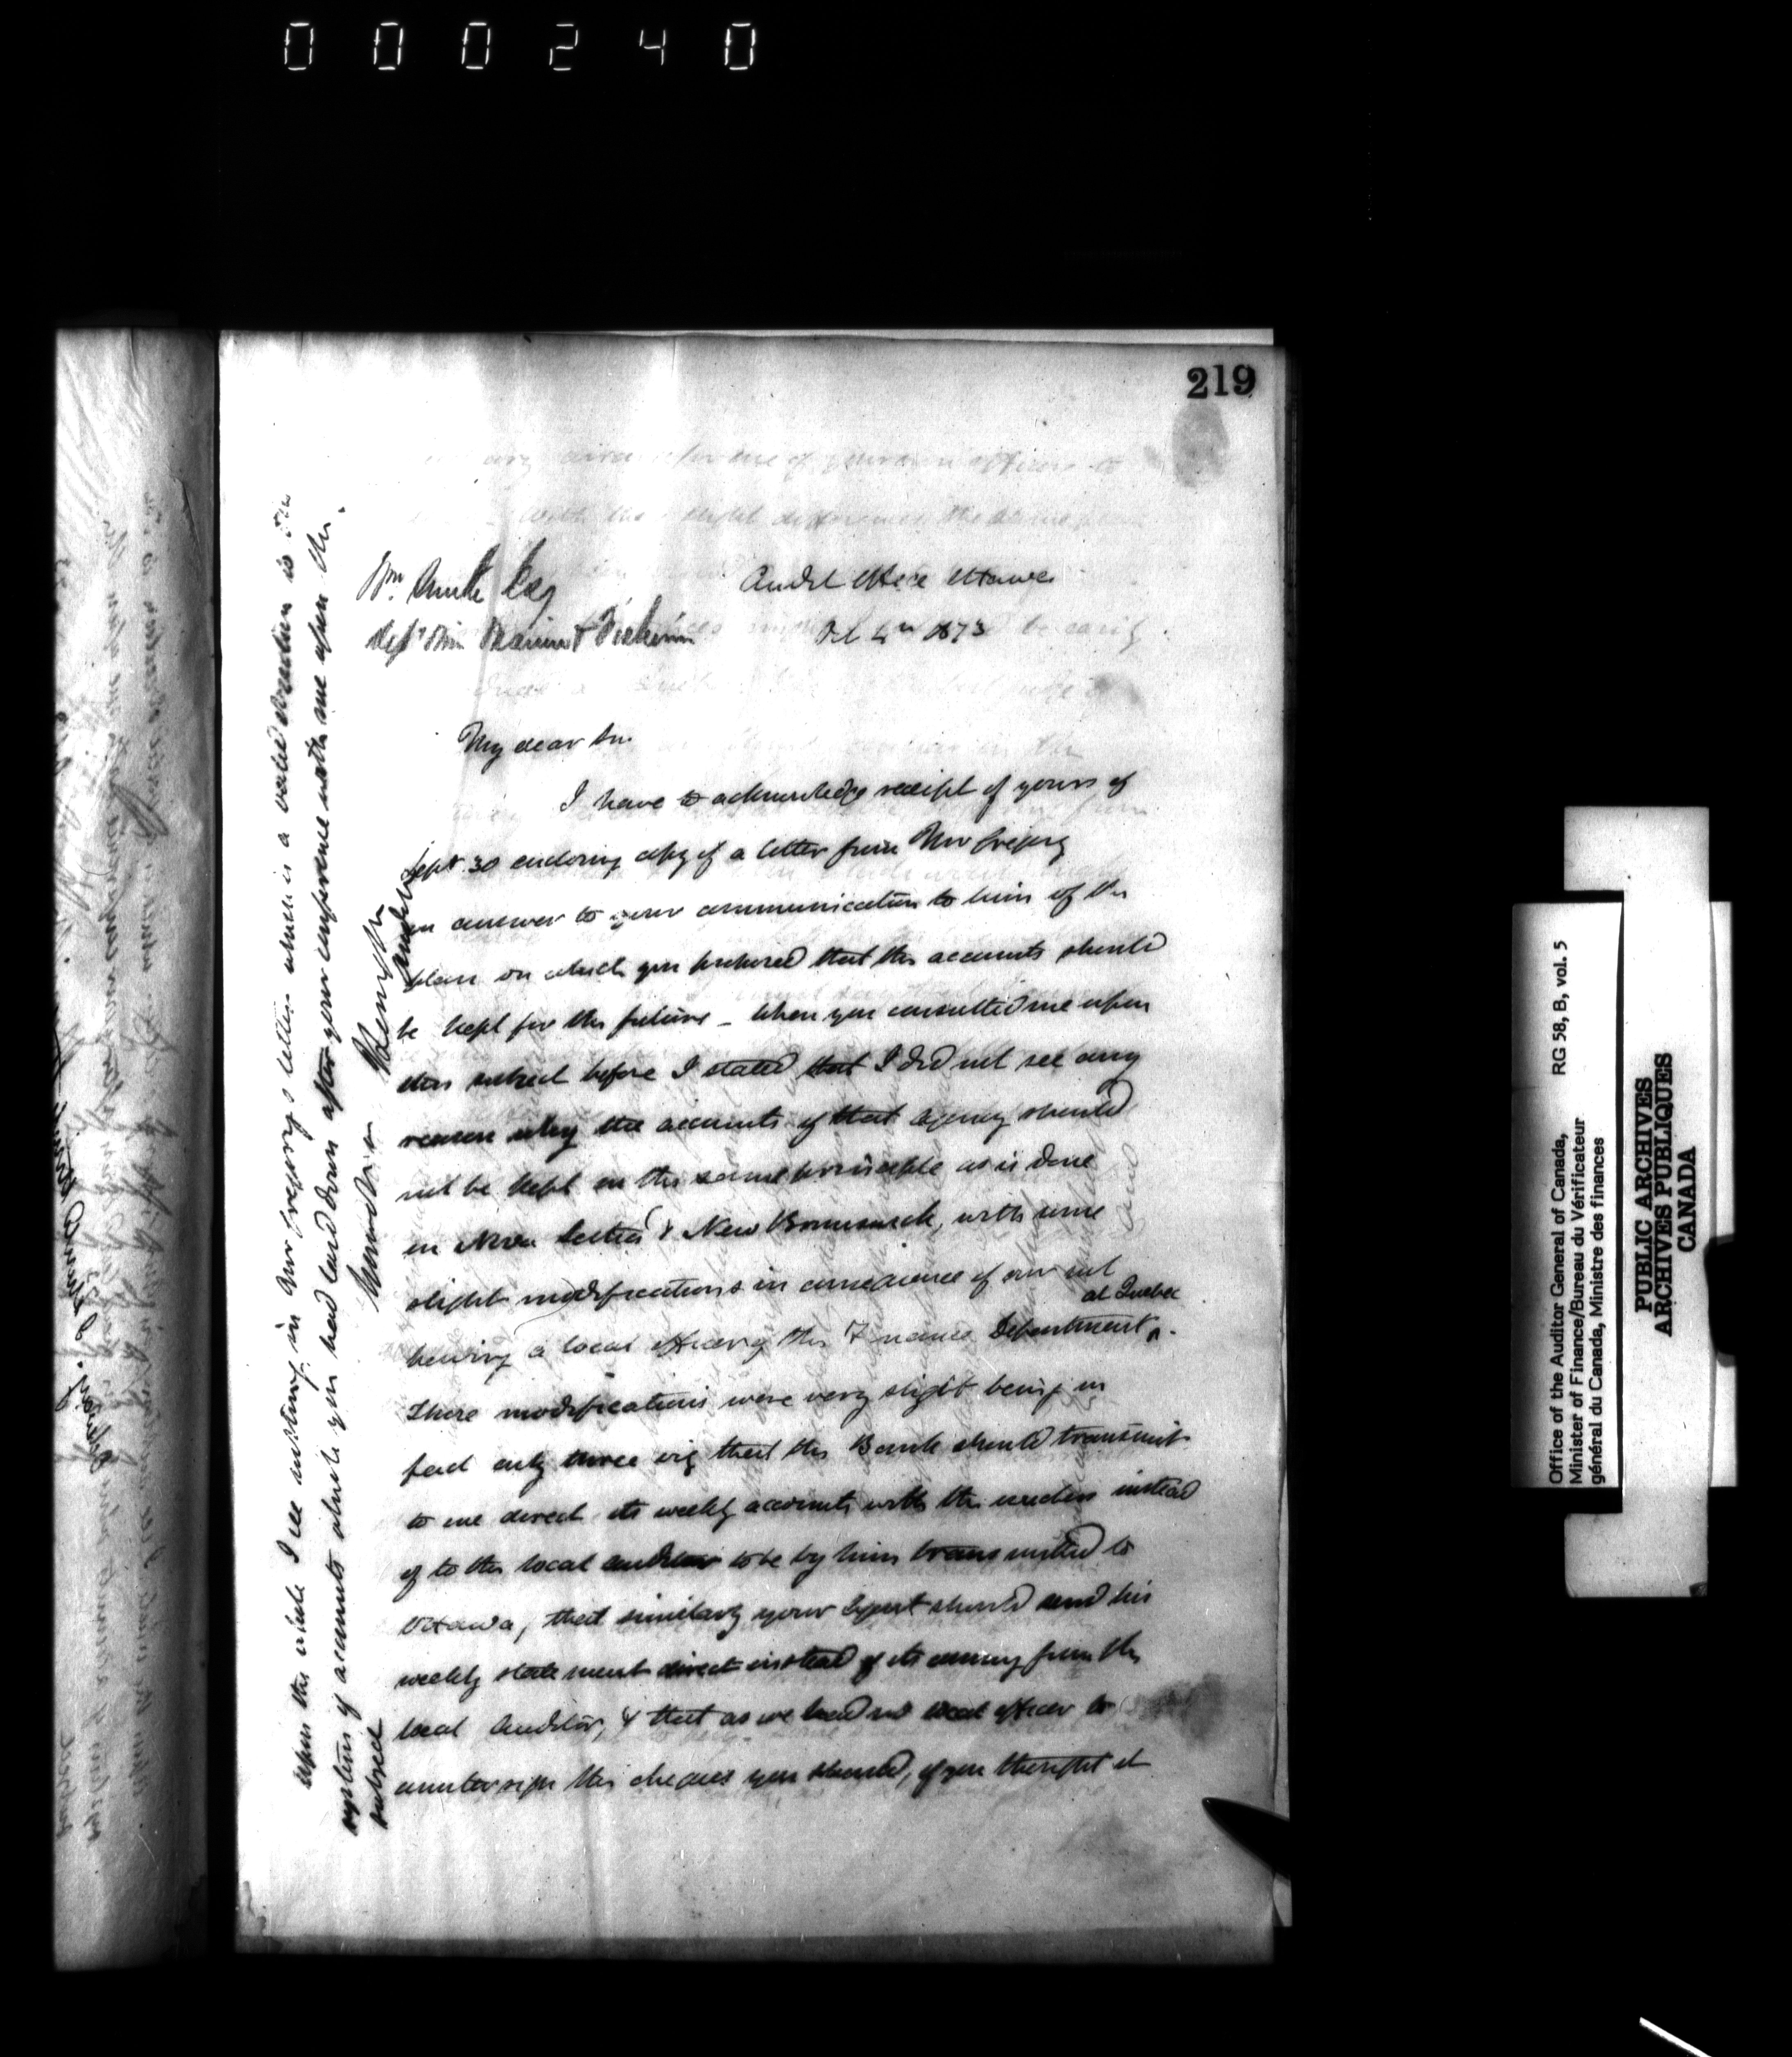 000240
219
Wm Smith Esq
Audit Office Ottawa
Dept Min Marine & Fisheries
Oct 2nd 1873
My dear Sir
I have to acknowledge receipt of yours of
Sept 30 enclosing copy of a letter from Mr Gregory
in answer to your communication to him of the
plan on which you proposed that the accounts should
be kept for the future _ When you consulted me upon
this subject before I stated that I did not see any
reason why the accounts of that agency should
not be kept on the same principle as is done
in Nova Scotia & New Brunswick, with some
slight modifications in consequence of our not
having a local officer of the Finance Department at Quebec.
These modifications were very slight being in
fact only three viz that the Bank should transmit
to me direct its weekly accounts with the vouchers instead
of to the local auditor to be by him transmitted to
Ottawa, that similarly your Agent should send his
weekly statement direct instead of its coming from the
local Auditor, & that as we had no local officer to
countersign the cheques you should, if you thought it
upon the whole I see nothing in Mr Gregory's letter which is a valid objection to the
system of accounts which you had laid down after your conference with me upon the
subject
Office of the Auditor General of Canada,
Minister of Finance/Bureau du Vérificateur
général du Canada, Ministre des finances
RG 58, B, vol. 5
PUBLIC ARCHIVES
ARCHIVES PUBLIQUES
CANADA